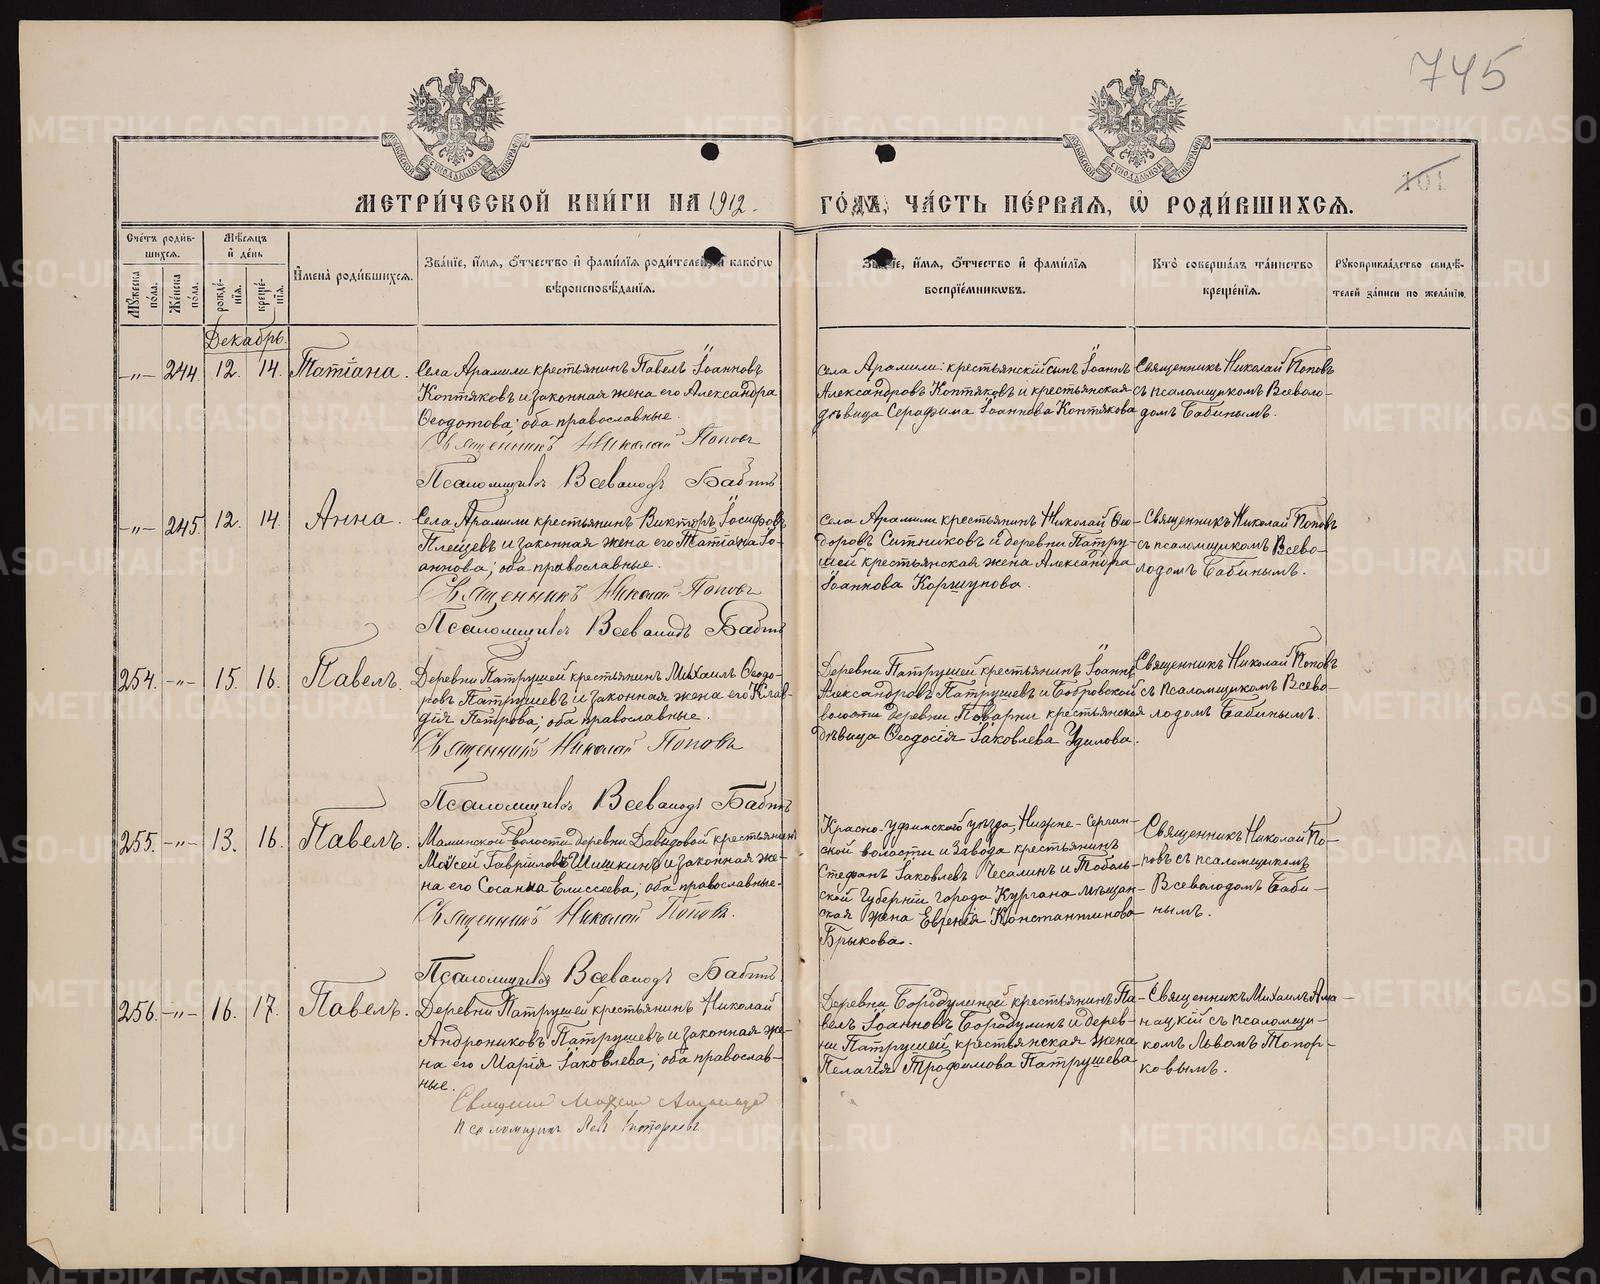 745
101
МЕТРИ́ЧЕСКОЙ КНИ́ГИ НА 1912. ГО́ДЪ, ЧА́СТЬ ПЕ́РВАЯ, Ѡ҆ РОДИ́ВШИХСЯ.
Сче́тъ роди́в-
шихся.
Мѣ́сяцъ
и҆ де́нь
Мꙋ́жеска по́ла.
Же́нска по́ла.
рожде́-
нїя.
креще́-
нїя.
И҆мена̀ роди́вшихся.
Зва́нїе, и҆́мя, ѻ҆́тчество и҆ фами́лїя роди́телей, и҆ како́гѡ
вѣроисповѣ́данїя.
Зва́нїе, и҆́мя, ѻ҆́тчество и҆ фами́лїя
воспрїе́мникѡвъ.
Кто̀ соверша́лъ та́инство
креще́нїя.
Рꙋкоприкла́дство свидѣ́-
телей за́писи по жела́нїю.
Декабрь.
-"- 244. 12. 14. Татіана.
Села Арамили крестьянинъ Павелъ Іоанновъ
Коптяковъ и законная жена его Александра
Ѳеодотова; оба православные.
Священникъ Николай Поповъ
Псаломщикъ Всеволодъ Бабинъ
Села Арамили: крестьянскій сынъ Іоаннъ
Александровъ Коптяковъ и крестьянская
дѣвица Серафима Іоаннова Коптякова
Священникъ Николай Поповъ
съ псаломщикомъ Всеволо-
домъ Бабинымъ.
-"- 245. 12. 14. Анна.
Села Арамили крестьянинъ Викторъ Іосифовъ
Плещевъ и законная жена его Татіана Іо-
аннова; оба православные.
Священникъ Николай Поповъ
Псаломщикъ Всеволодъ Бабинъ
Села Арамили крестьянинъ Николай Ѳео-
доровъ Ситниковъ и деревни Патру-
шей крестьянская жена Александра
Іоаннова Коршунова.
Священникъ Николай Поповъ
съ псаломщикомъ Всево-
лодомъ Бабинымъ.
254. -"- 15. 16. Павелъ.
Деревни Патрушей крестьянинъ Михаилъ Ѳеодо-
ровъ Патрушевъ и законная жена его Клав-
дія Петрова; оба православные.
Священникъ Николай Поповъ
Псаломщикъ Всеволодъ Бабинъ
Деревни Патрушей крестьянинъ Іоаннъ
Александровъ Патрушевъ и Бобровской
волости деревни Поварни крестьянская
дѣвица Ѳеодосія Іаковлева Удилова.
Священникъ Николай Поповъ
съ псаломщикомъ Всево-
лодомъ Бабинымъ.
255. -"- 13. 16. Павелъ.
Маминской волости деревни Давыдовой крестьянинъ
Моѵсей Гавриловъ Шишкинъ и законная же-
на его Сосанна Елиссеева; оба православные.
Священникъ Николай Поповъ.
Псаломщикъ Всеволодъ Бабинъ
Красно-Уфимского уѣзда, Нижне-Сергин-
ской волости и Завода крестьянинъ
Стефанъ Іаковлевъ Чесалинъ и Тоболь-
ской Губерніи города Кургана мѣщан-
ская жена Евгенія Константинова
Брыкова.
Священникъ Николай По-
ровъ съ псаломщикомъ
Всеволодомъ Баби-
нымъ.
256. -"- 16. 17. Павелъ.
Деревни Патрушей крестьянинъ Николай
Андрониковъ Патрушевъ и законная же-
на его Марія Іаковлева; оба православ-
ные.
Псаломщикъ Левъ Топорковъ
Деревни Бородулиной крестьянинъ Па-
велъ Іоанновъ Бородулинъ и дерев-
ни Патрушей крестьянская жена
Пелагія Трофимова Патрушева
Священникъ Михаилъ Ама-
нацкій съ псаломщи-
комъ Львомъ Топор-
ковымъ.
METRIKI.GASO-URAL.RU